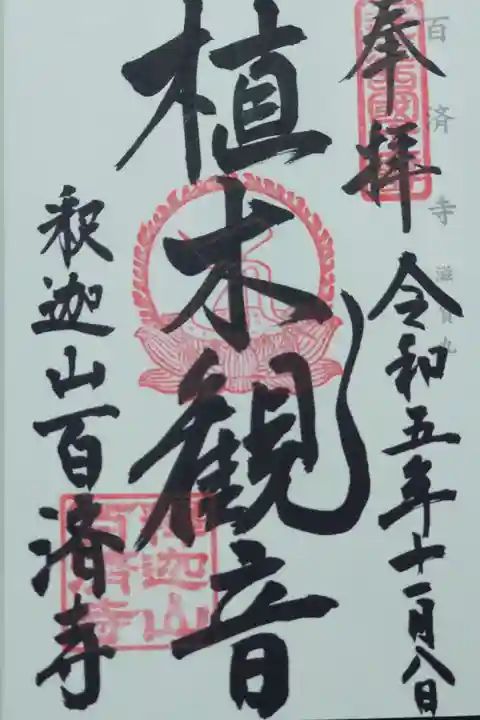 百済寺 滋賀九
奉拝
令和五年十一月八日
植木観音
釈迦山百済寺
釈迦山
百済寺